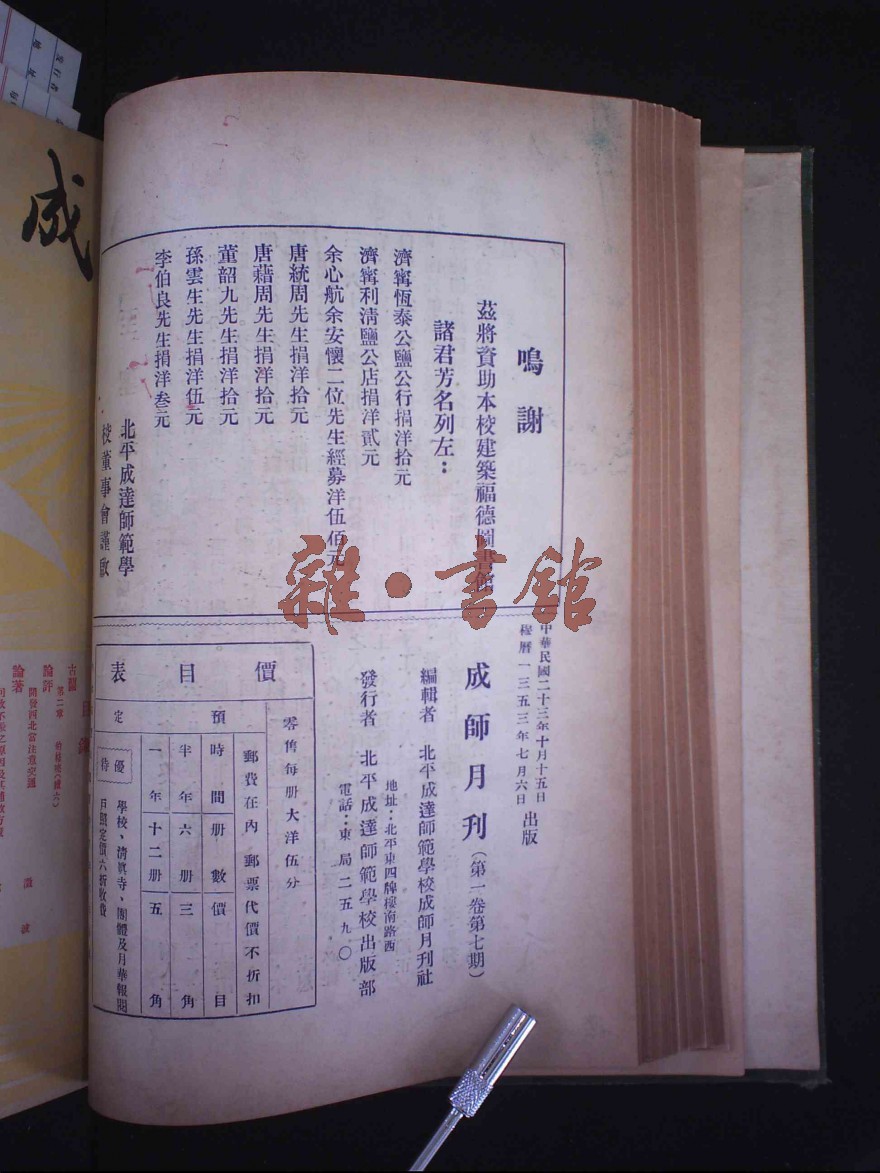 鳴謝
茲將資助本校建築福德圖書館
諸君芳名列左：
濟甯恆泰公鹽公行捐洋拾元
濟甯利清鹽公店捐洋貳元
余心航余安懷二位先生經募洋伍佰元
唐統周先生捐洋拾元
唐藉周先生捐洋拾元
董韶九先生捐洋拾元
孫雲生先生捐洋伍元
李伯良先生捐洋叁元
北平成達師範學
校董事會謹啟
中華民國二十三年十月十五日
穆曆一三五三年七月六日
出版
成師月刊（第一卷第七期）
編輯者 北平成達師範學校成師月刊社
地址：北平東四牌樓南路西
發行者 北平成達師範學校出版部
電話：東局二五九〇
價目表
零售每册大洋伍分
預定
郵費在內 郵票代價不折扣
時間 册數 價目
半年 六册 三角
一年 十二册 五角
優待
學校、清眞寺、團體及月華報閱
戶照定價六折收費
雜·書館
成
古蘭
第二章
論評
開發西北當注意交通
論著